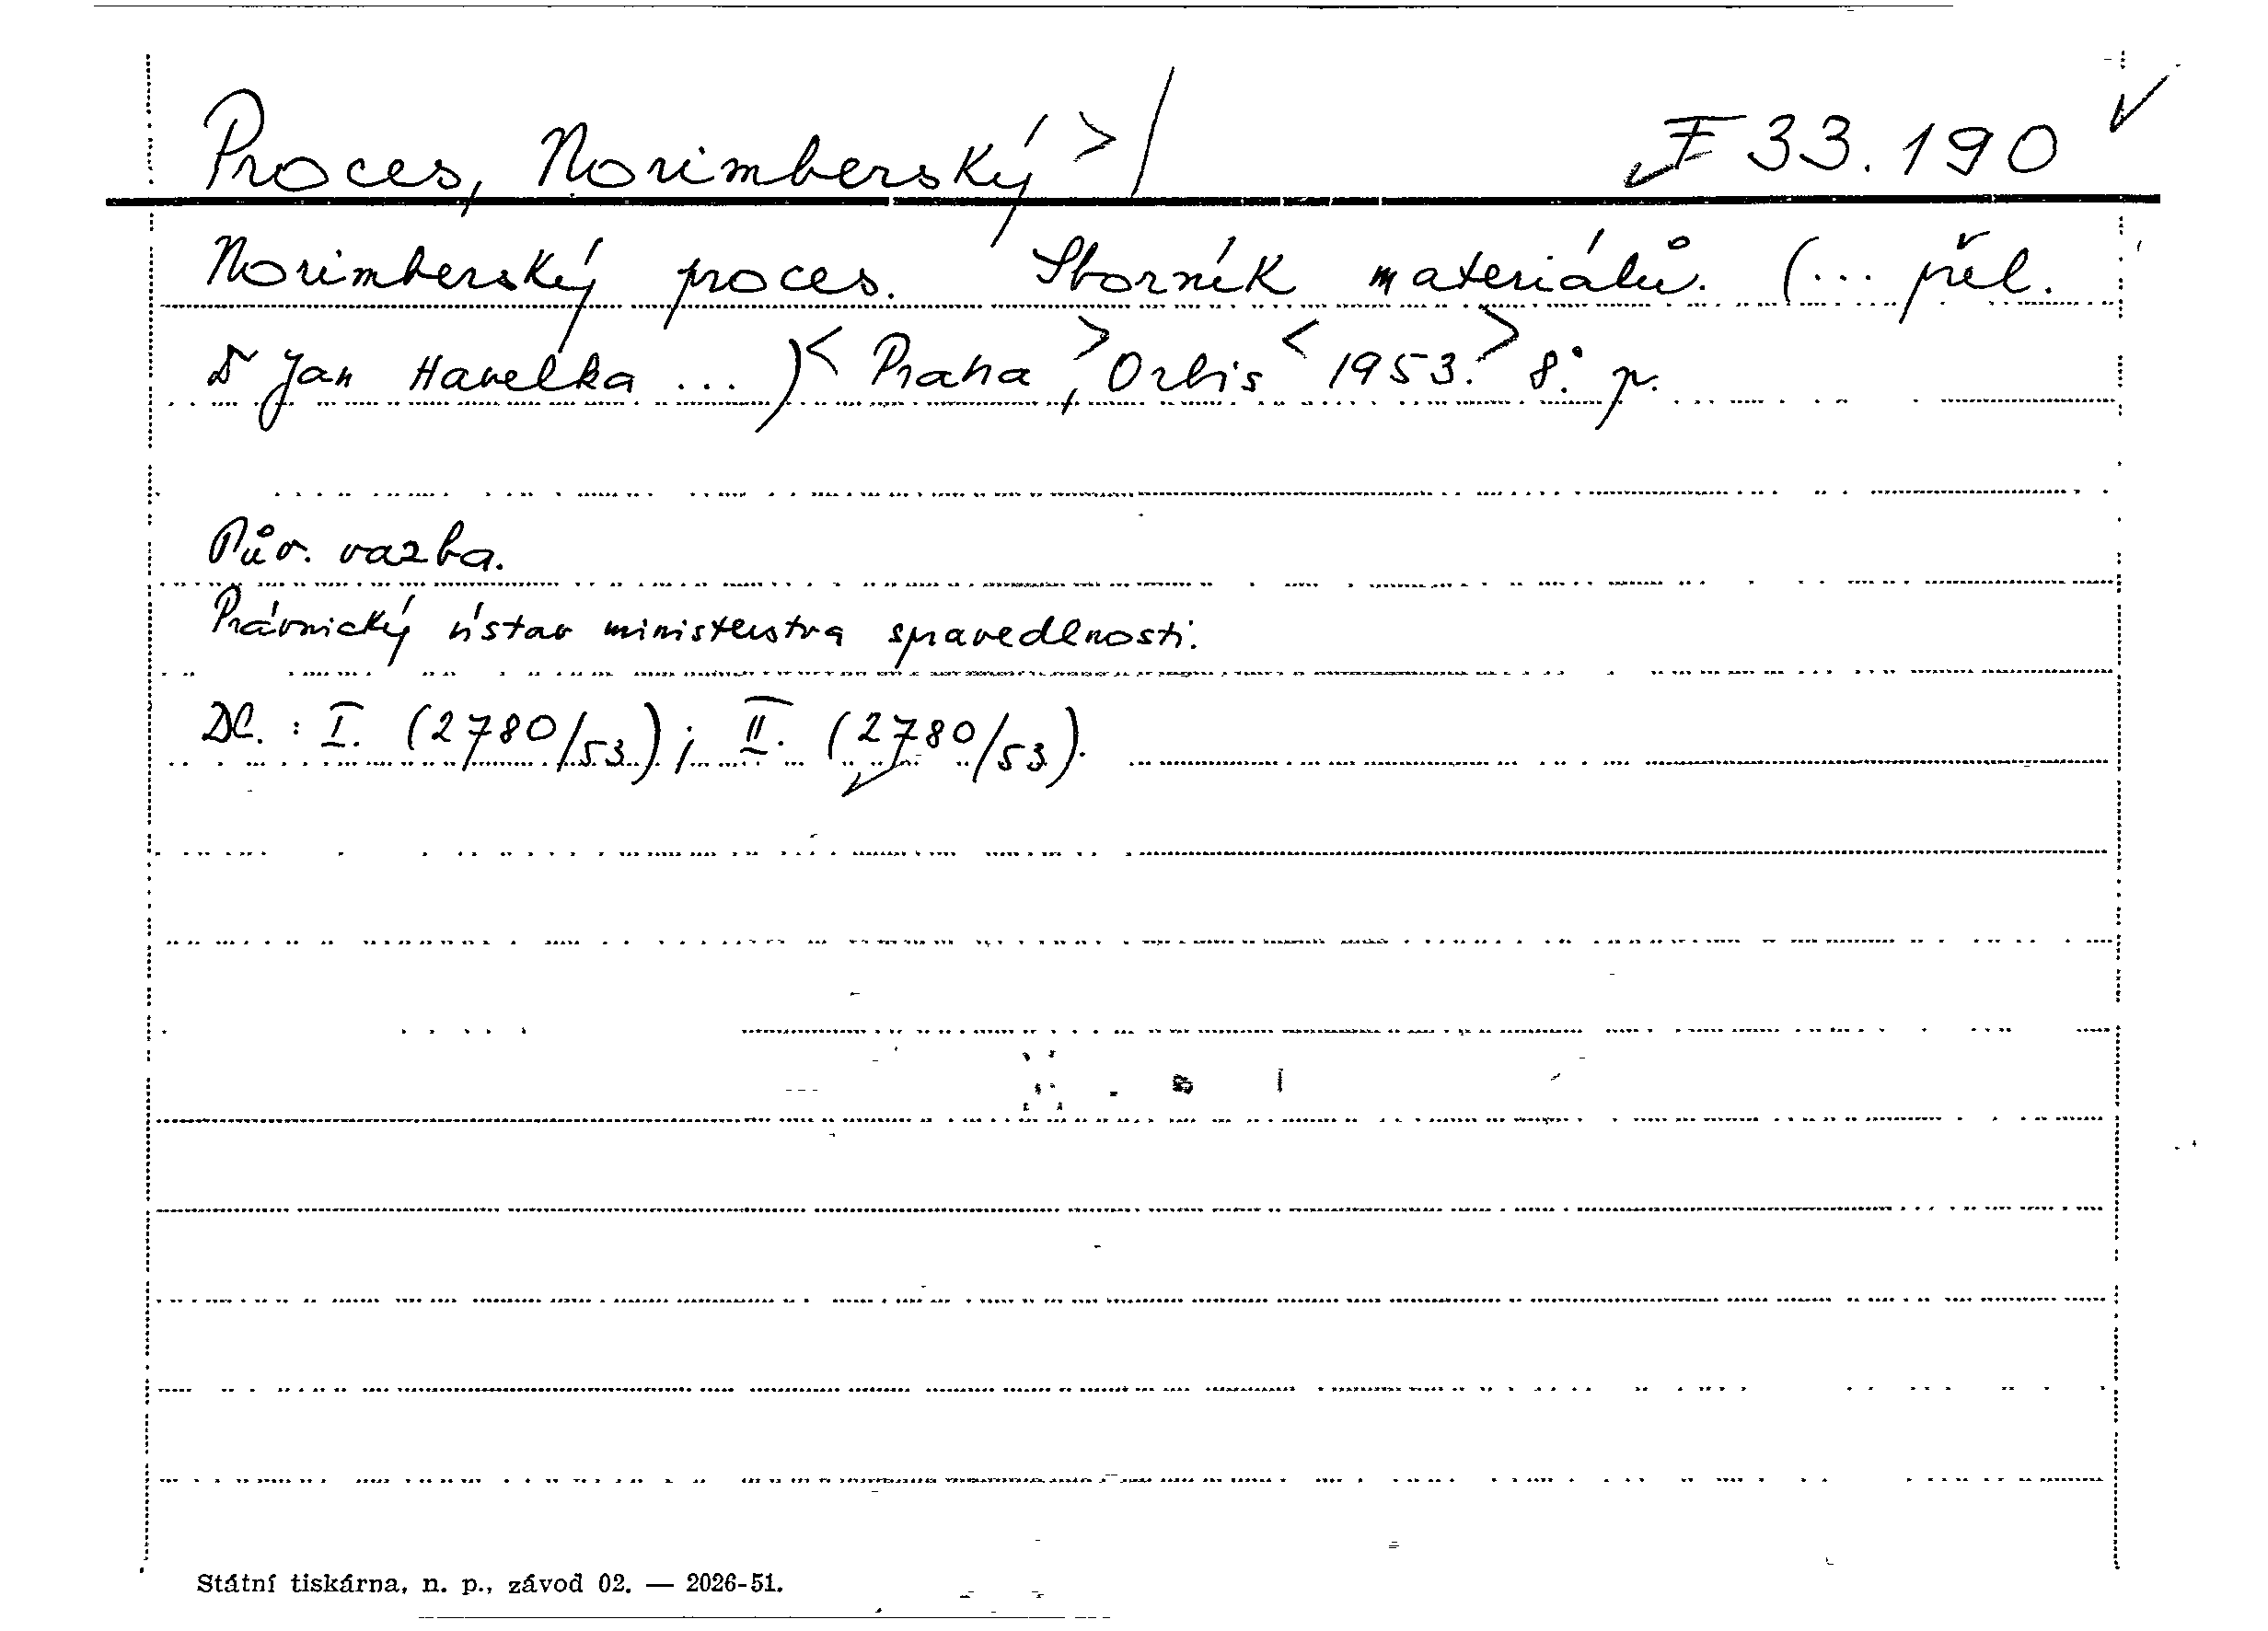 Proces, Norimberský >/ F 33.190
Norimberský proces. Sborník materiálů. (... přel.
Dr Jan Havelka ... ) < Praha, > Orbis < 1953. > 8°. p.
Pův. vazba.
Právnický ústav ministerstva spravedlnosti.
DC. : I. (2780/53); II. (2780/53).
Státní tiskárna, n. p., závod 02. — 2026-51.